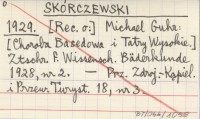 SKÓRCZEWSKI
1929. [Rec. o:] Michael Guhr:
[Choroba Basedowa i Tatry Wysokie.]
Ztschr. f. Wissensch. Bäderkunde
1928, nr 2. — Prz. Zdroj.-Kąpiel.
i Przew. Turyst. 18, nr 3.